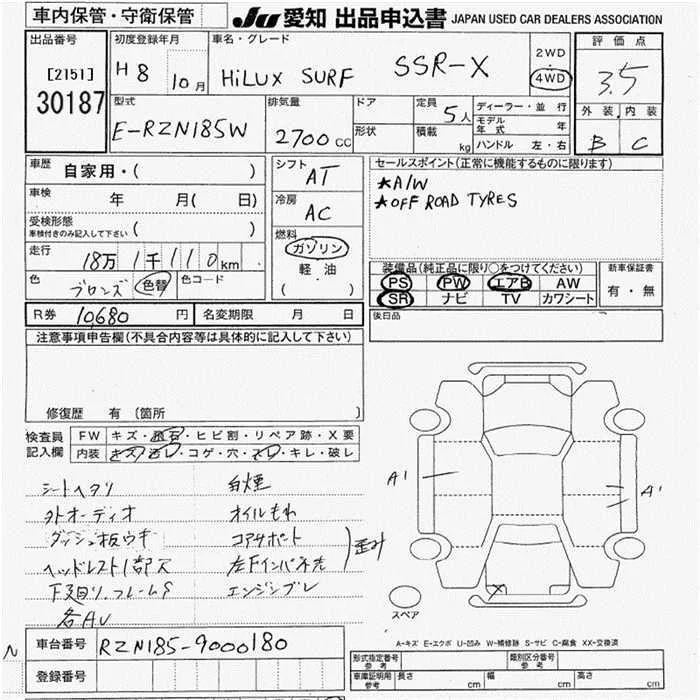 車内保管・守衛保管
JU 愛知 出品申込書 JAPAN USED CAR DEALERS ASSOCIATION
出品番号
[2151]
30187
初度登録年月
H8 10月
車名・グレード
HiLUX SURF SSR-X
2WD
4WD
評価点
3.5
外装 内装
B C
型式
E-RZN185W
排気量
2700 cc
ドア
形状
定員 5人
積載 kg
ディーラー・並行
モデル年式 年
ハンドル 左・右
車歴 自家用・( )
車検 年 月( 日)
受検形態
車検付きのみ記入して下さい ( )
走行 18万1千110km
色 ブロンズ 色替 色コード
シフト
AT
冷房
AC
燃料
ガソリン
軽油
( )
セールスポイント(正常に機能するものに限ります)
★A/W
★OFF ROAD TYRES
装備品(純正品に限り○をつけてください)
PS PW エアB AW
SR ナビ TV カワシート
新車保証書
有・無
R券 10,680 円 名変期限 月 日
後日品
注意事項申告欄(不具合内容等は具体的に記入して下さい)
修復歴 有 〔箇所 〕
検査員記入欄
FW キズ・飛石・ヒビ割・リペア跡・X要
内装 キズ・汚レ・コゲ・穴・スレ・キレ・破レ
シートヘタリ 白煙
外オーディオ オイルもれ
ダッシュ板ウキ コアサポート
ヘッドレスト1部欠 左下インパネ売
歪み
下廻り、フレームS エンジンブレ
各AU
A1
A1
X
スペア
A-キズ E-エクボ U-凹み W-補修跡 S-サビ C-腐食 XX-交換済
N
車台番号 RZN185-9000180
登録番号
形式指定番号 参考
類別区分番号 参考
車庫証明用 参考 長さ cm 幅 cm 高さ cm